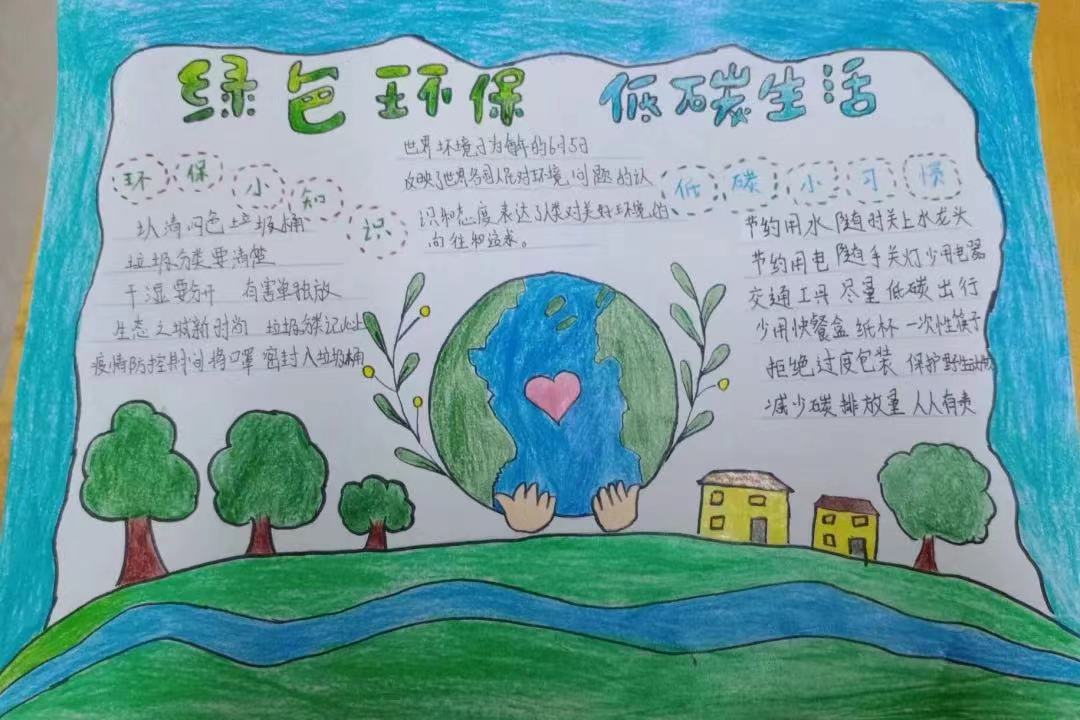 绿色环保 低碳生活
世界环境日为每年的6月5日
反映了世界各国人民对环境问题的认
识和态度,表达了人类对美好环境的
向往和追求。
环保小知识
认清四色垃圾桶
垃圾分类要清楚
干湿要分开 有害单独放
生态之城新时尚 垃圾分类记心上
疫情防控期间将口罩密封入垃圾桶
低碳小习惯
节约用水 随时关上水龙头
节约用电 随手关灯 少用电器
交通工具 尽量低碳出行
少用快餐盒 纸杯 一次性筷子
拒绝过度包装 保护野生动物
减少碳排放量 人人有责